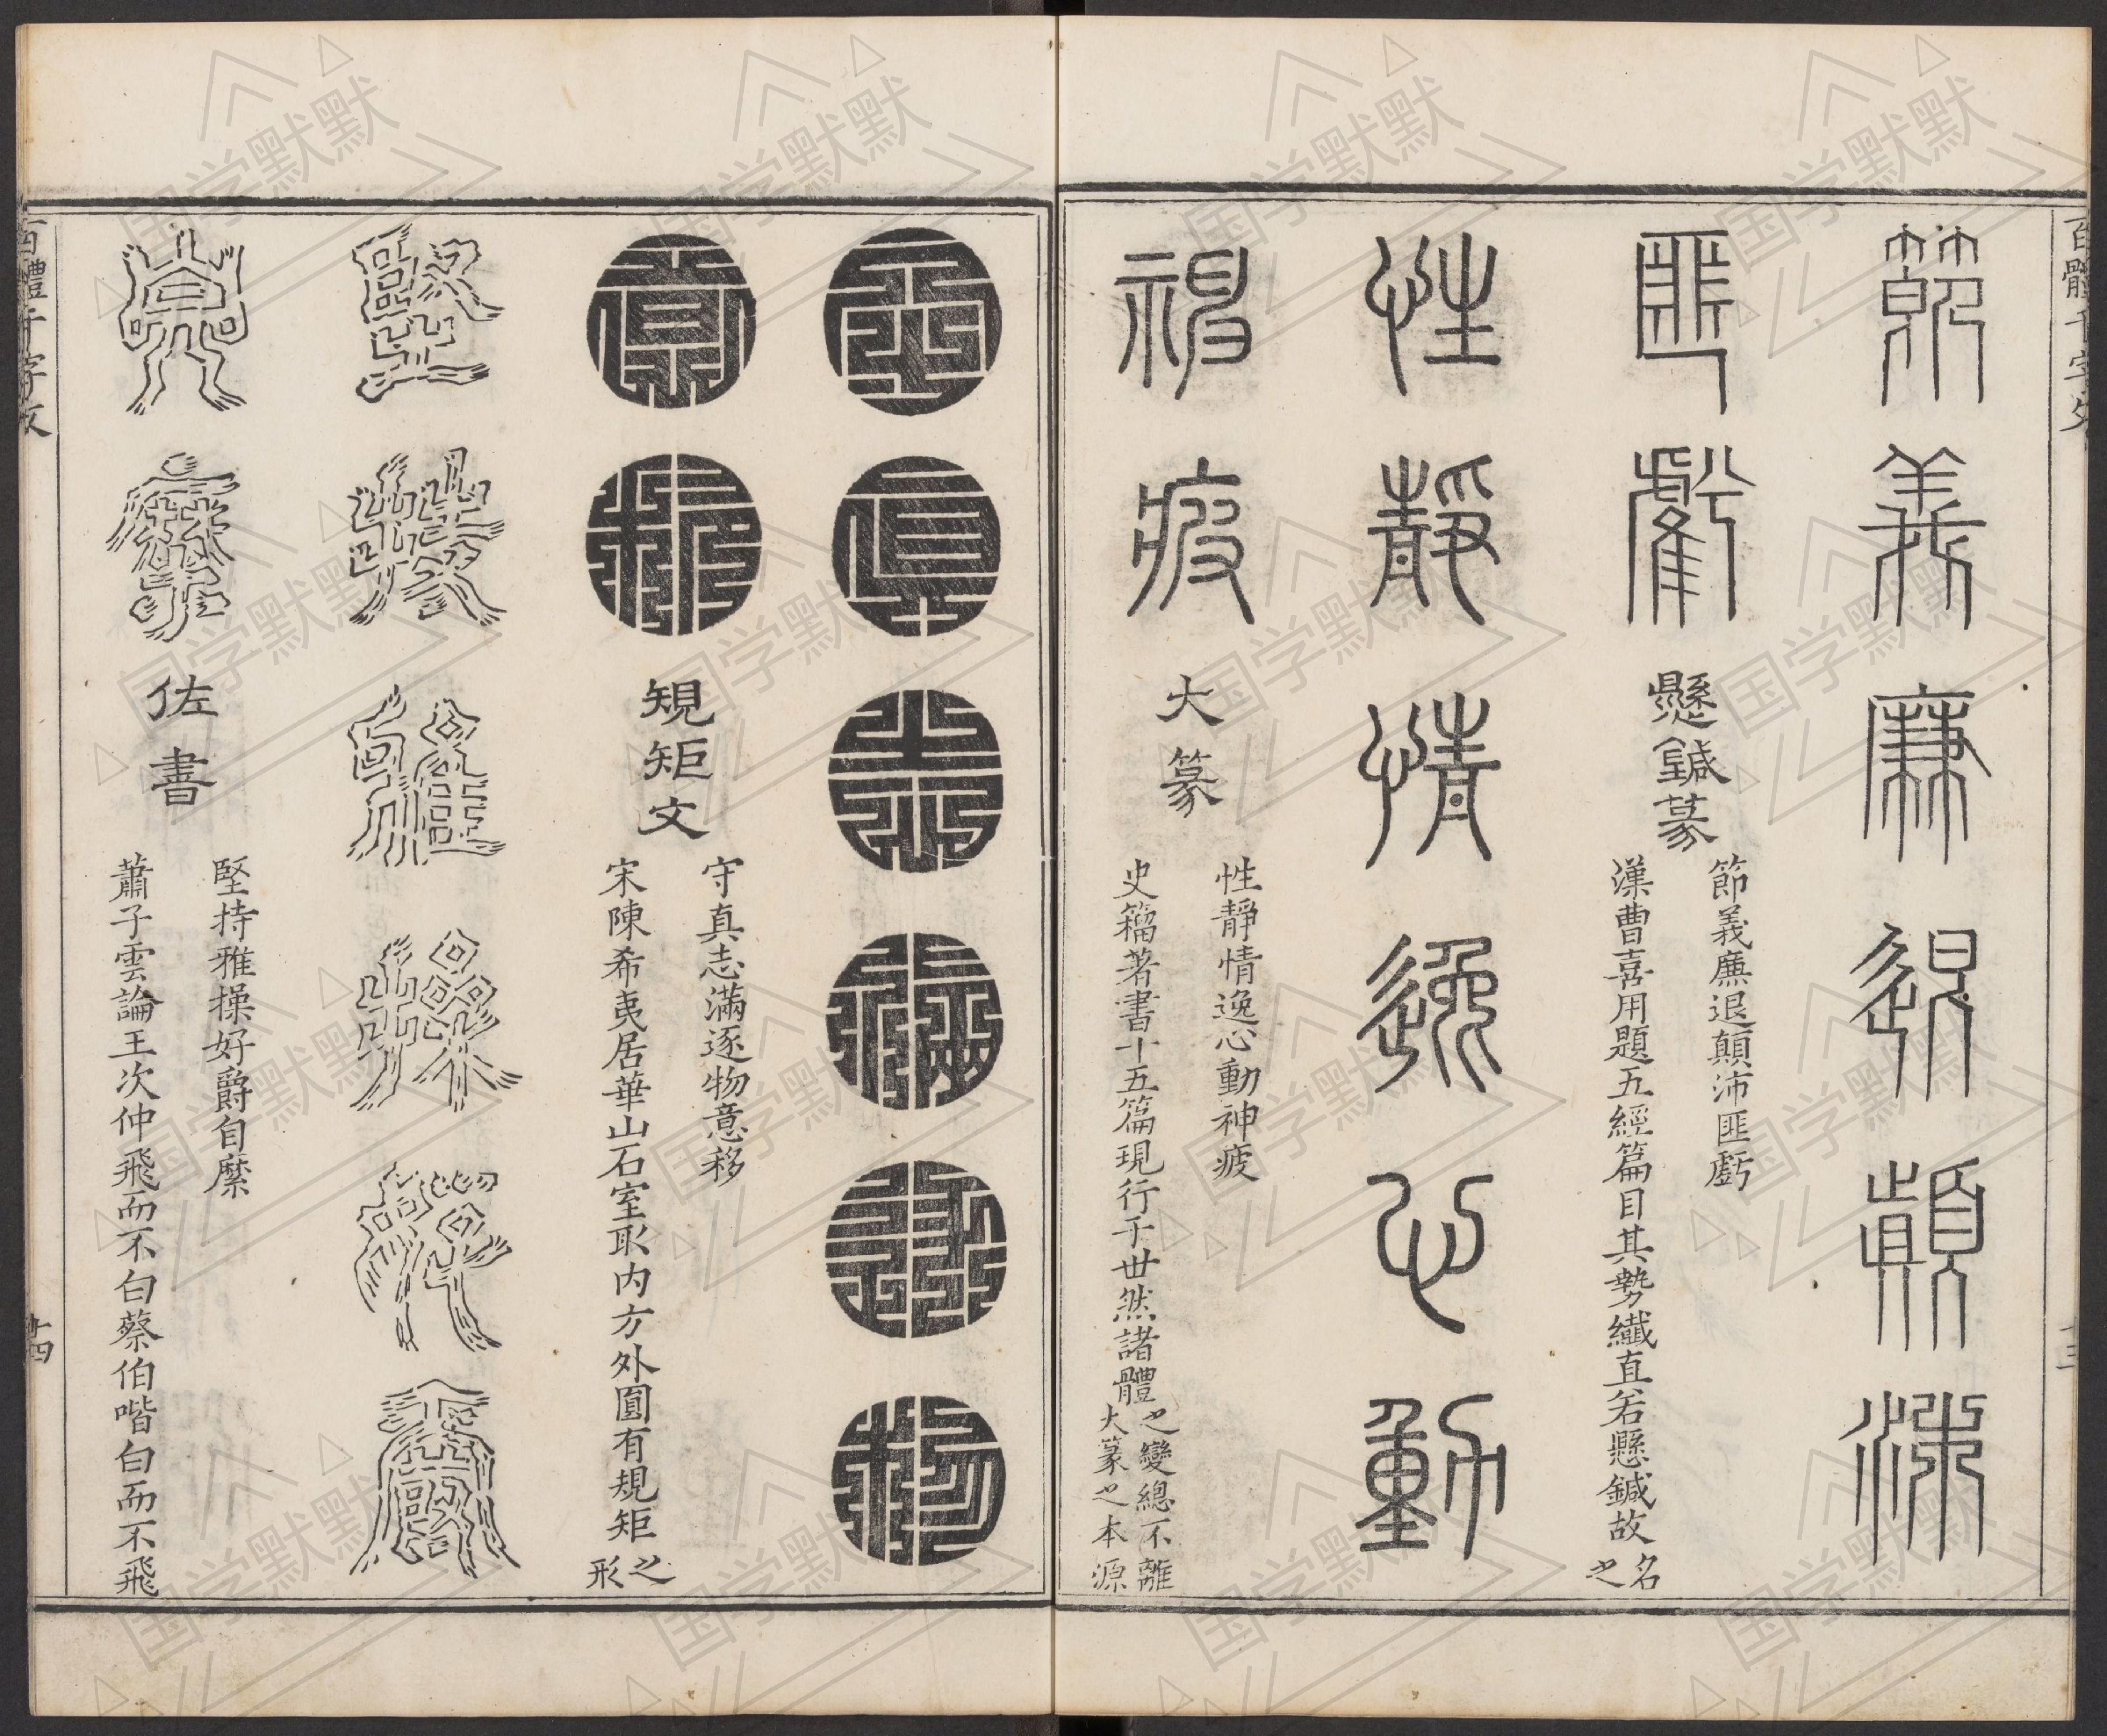 百體千字文
節義廉退顛沛
匪虧
懸鍼篆
節義廉退顛沛匪虧
漢曹喜用題五經篇目其勢纖直若懸鍼故名之
性靜情逸心動
神疲
大篆
性靜情逸心動神疲
史籀著書十五篇現行于世然諸體之變總不離大篆之本源
十三
守真志滿逐物
意移
規矩文
守真志滿逐物意移
宋陳希夷居華山石室取内方外圓有規矩之形
堅持雅操好爵
自縻
佐書
堅持雅操好爵自縻
蕭子雲論王次仲飛而不白蔡伯喈白而不飛
百體千字文
十四
国学默默